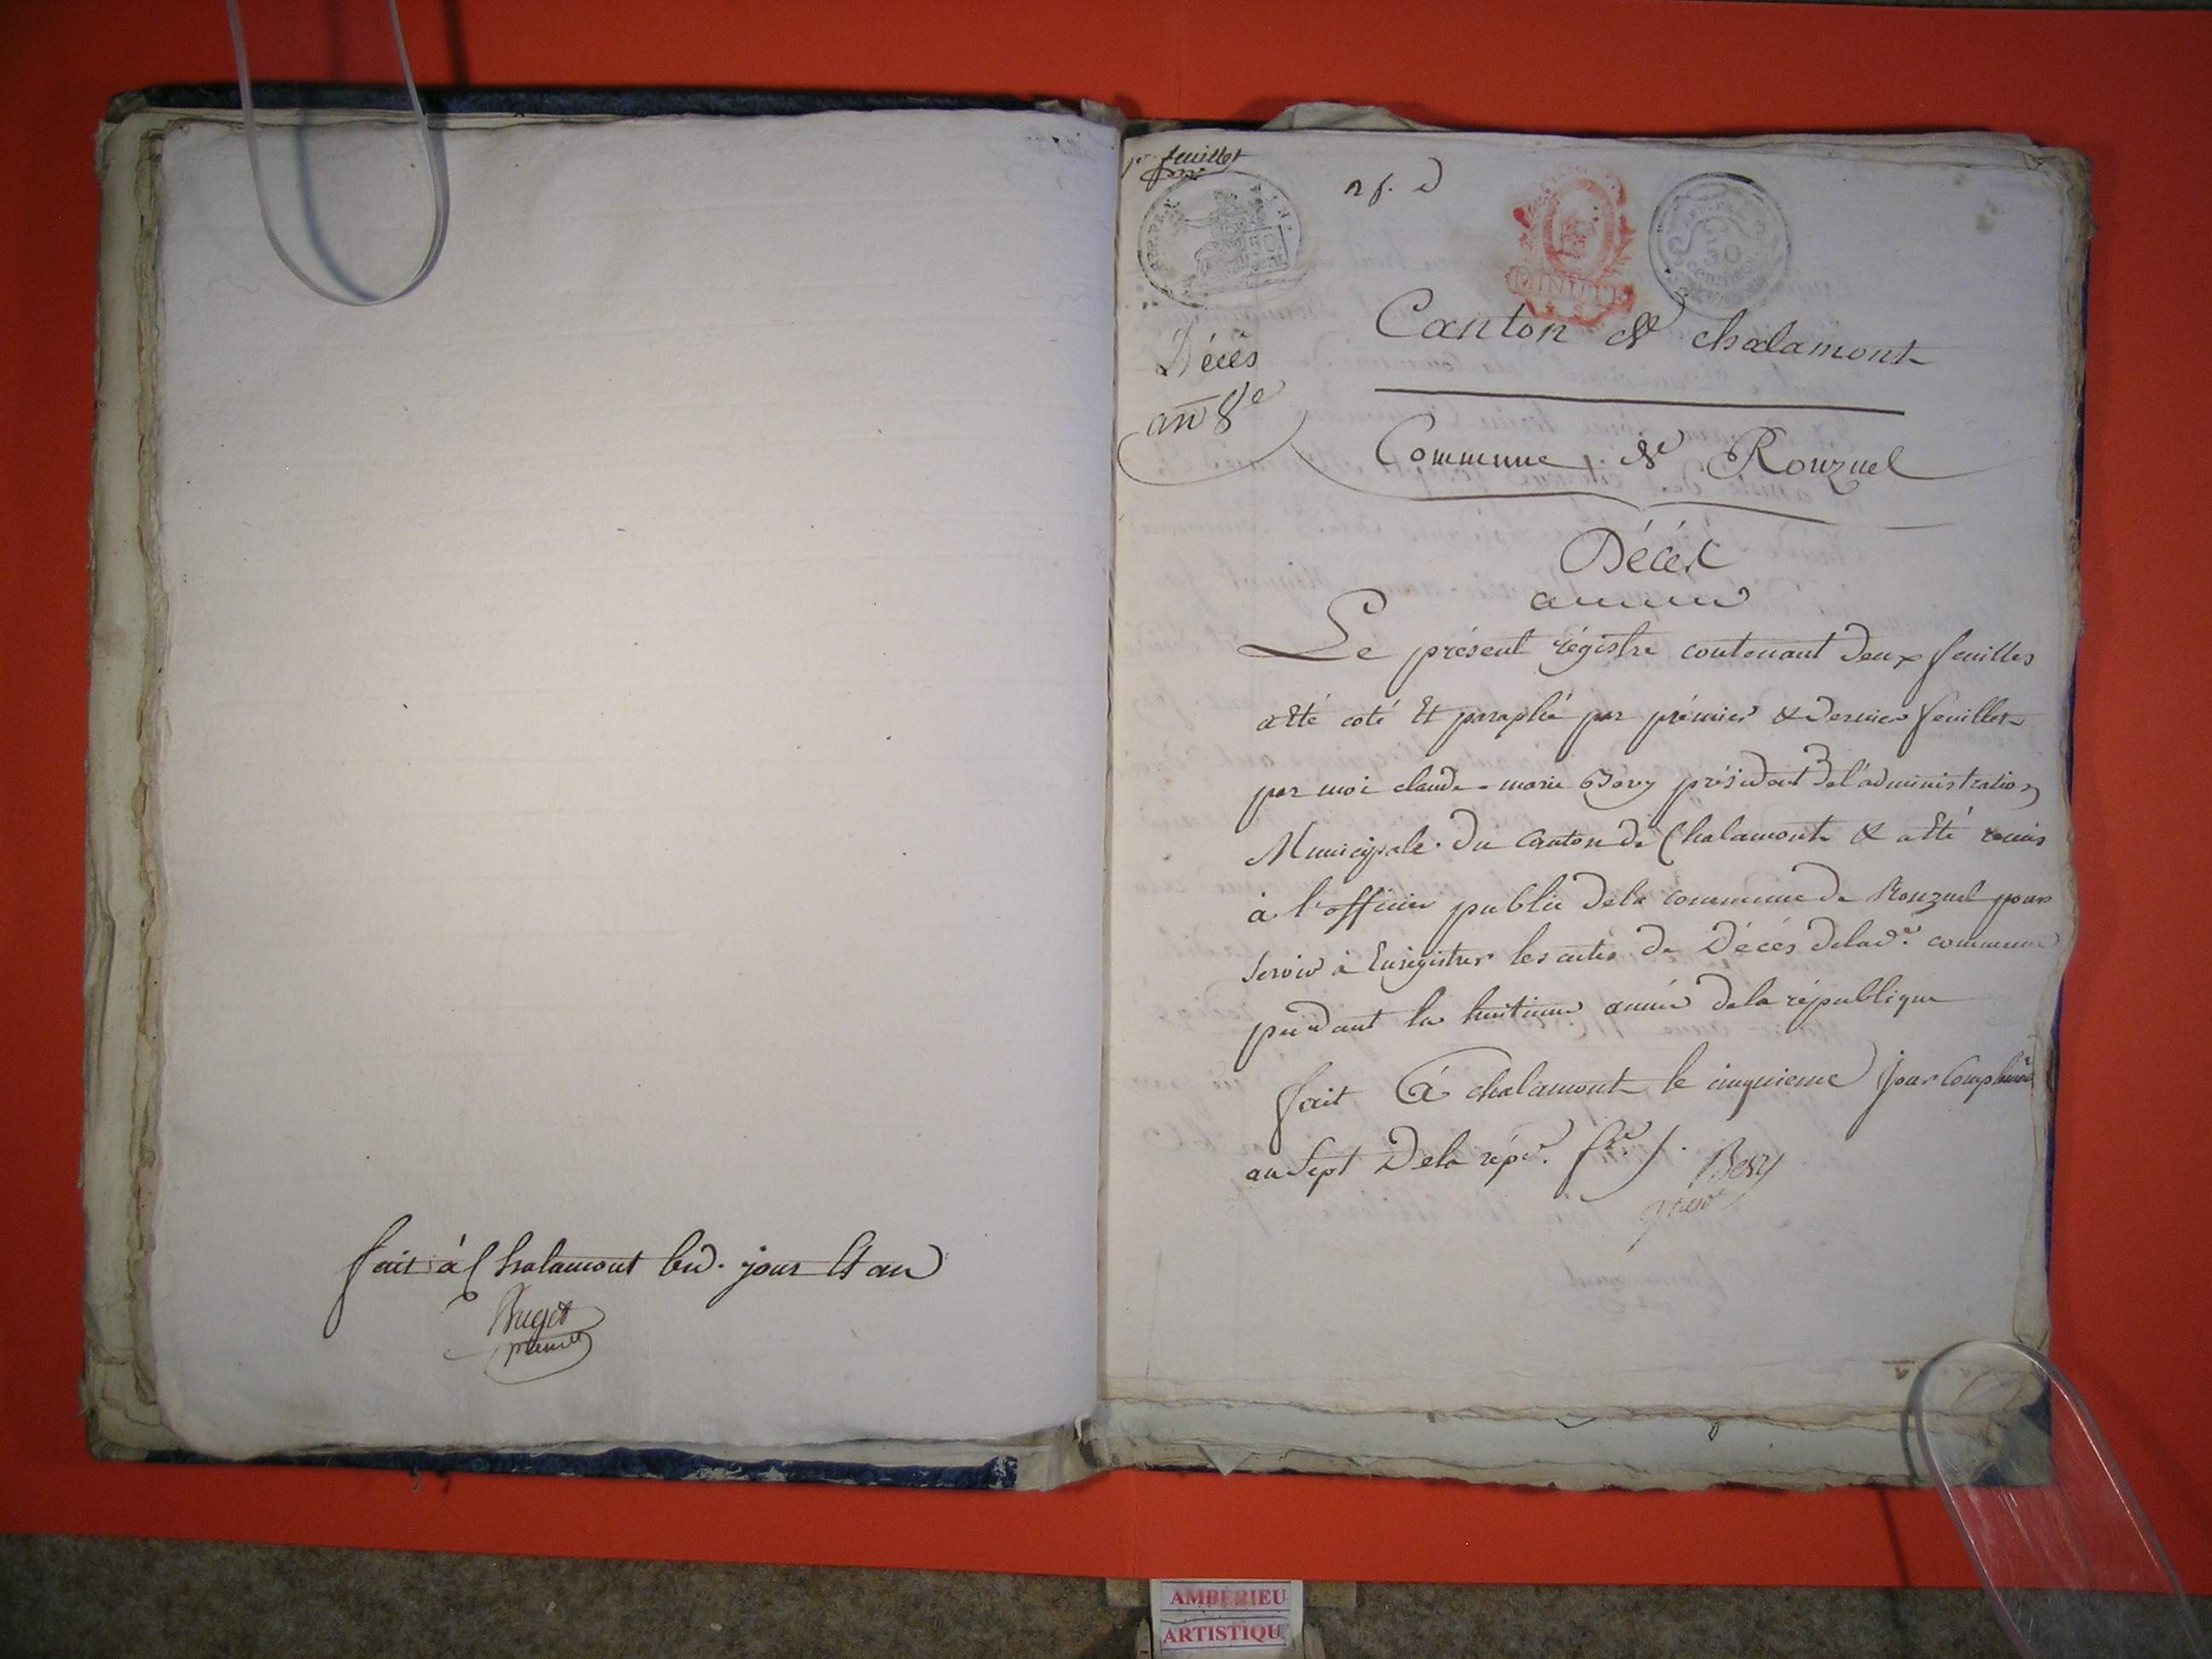 fait à Chalamont led. jour et an
Buget
1er feuillet
2 f. d
50
MINUTE
50
centimes
Décès
an 8e
Canton de chalamont
Commune de Ronzuel
Décès
Le présent régistre contenant deux feuilles
a été coté et paraphé par prémier & dernier feuillet
par moi claude-marie Bovy président de l'administration
Municipale du canton de Chalamont & a été remis
à l'officier public de la commune de Ronzuel pour
servir à Enrégistrer les actes de Décés de lad.e commune
pendant la huitieme année de la république
fait à chalamont le cinquieme jour Complémre
an Sept De la répe. fse /.
Bovy
présdt
AMBERIEU
ARTISTIQU